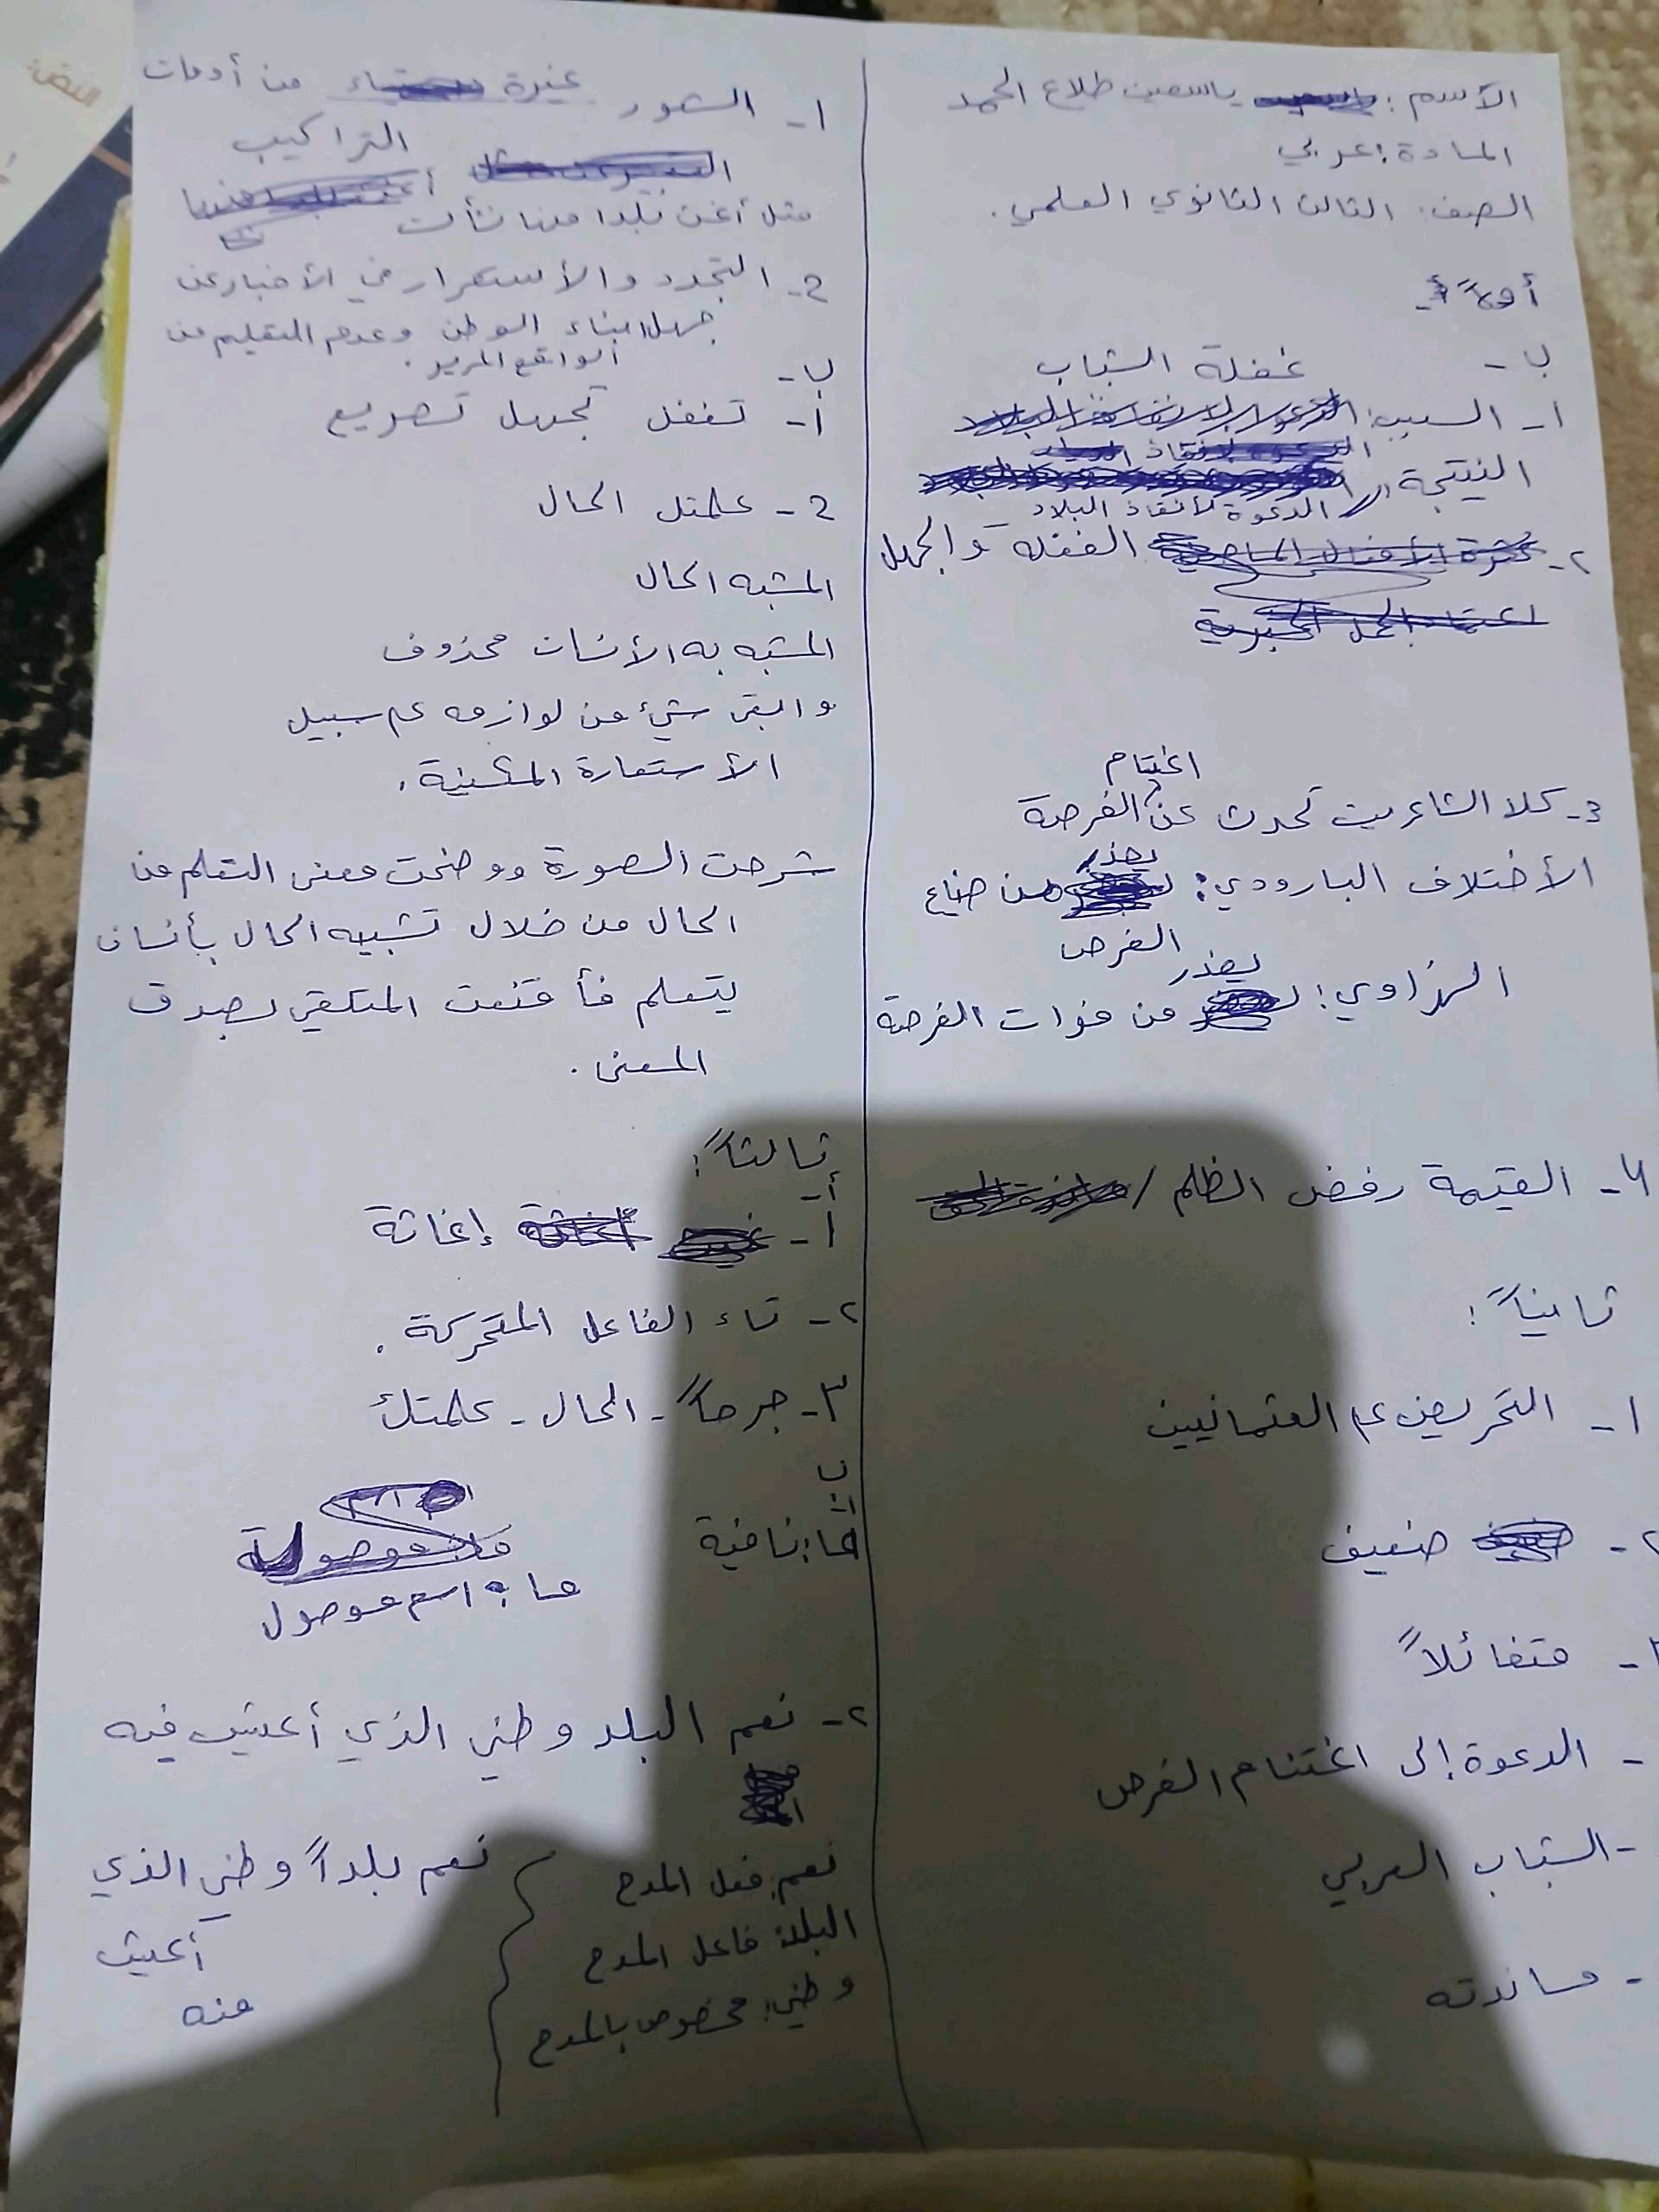 الأسم: ياسمين طلاع الحمد
المادة: عربي
الصف: الثالث الثانوي العلمي.
أولاً:
ب-
غفلة الشباب
١- السبب:
النتيجة // الدعوة لأنقاذ البلاد
٢- الغفلة و الجهل
اغتنام
3- كلا الشاعرين تحدث عن الفرصة
يحذر
الأختلاف البارودي: من ضياع
الفرص
يحذر
الزهاوي: من فوات الفرصة
4- القيمة رفض الظلم /
ثانياً:
١- التحريض على العثمانيين
٢- ضعيف
- متفائلاً
- الدعوة إلى اغتنام الفرص
- الشباب العربي
- مساندته
١- الشعور غيرة من أدوات
التراكيب
مثل أغث بلدا منها نشأت
2- التجدد والأستمرار في الأخبار عن
جهل ابناء الوطن وعدم التعليم من
الواقع المرير.
ب-
١- تغفل تجهل تصريع
2- علمتك الحال
المشبه الحال
المشبه به الأنسان محذوف
و ابقى شيء من لوازمه على سبيل
الأستعارة المكنية.
شرحت الصورة ووضحت معنى التعلم من
الحال من خلال تشبيه الحال بأنسان
يتعلم فأقنعت المتلقي بصدق
المعنى.
ثالثاً:
أ-
١- إغاثة
٢- تاء الفاعل المتحركة.
٣- جرحاً - الحال - علمتك
ب
ما: نافية
ما: اسم موصول
٢- نعم البلد وطني الذي أعيش فيه
نعم: فعل المدح
البلد: فاعل المدح
وطني: مخصوص بالمدح
نعم بلداً وطني الذي
أعيش
منه